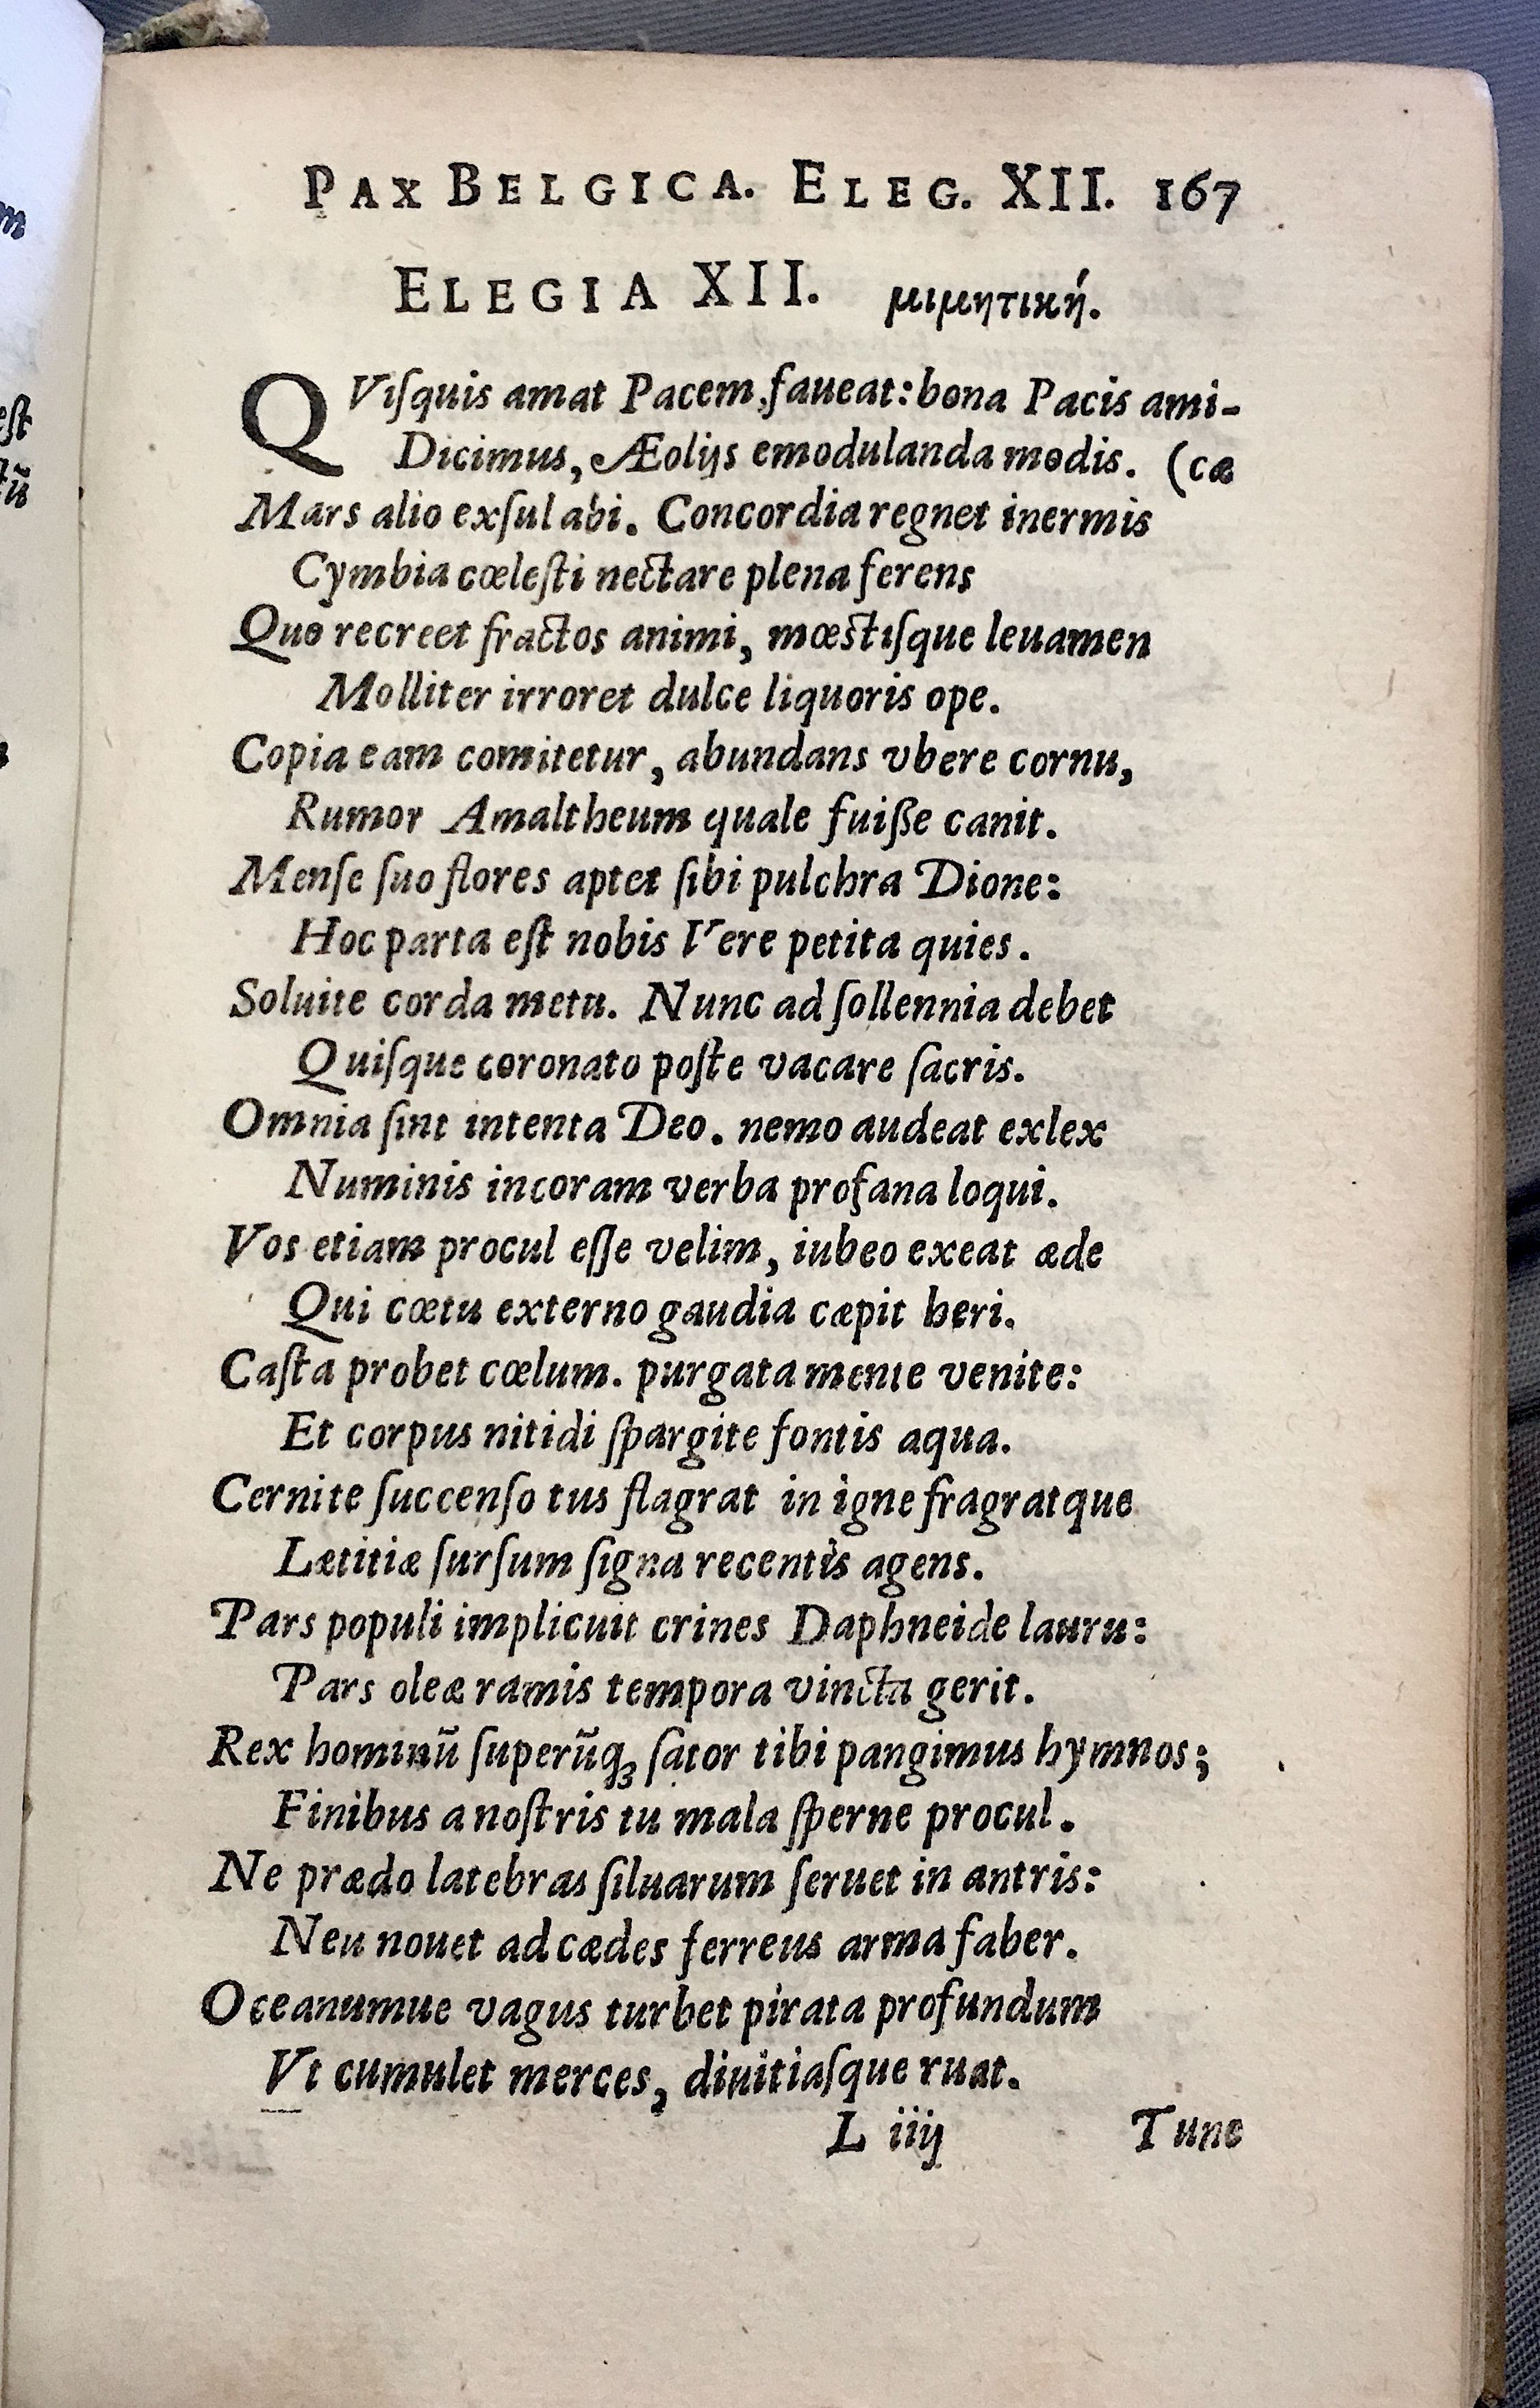 PAX BELGICA. ELEG. XII. 167
ELEGIA XII. μιμητική.
QViſquis amat Pacem, faueat: bona Pacis ami-
Dicimus, Æolijs emodulanda modis. (cæ
Mars alio exſul abi. Concordia regnet inermis
Cymbia cœleſti nectare plena ferens
Quo recreet fractos animi, mœstiſque leuamen
Molliter irroret dulce liquoris ope.
Copia eam comitetur, abundans vbere cornu,
Rumor Amaltheum quale fuiße canit.
Menſe ſuo flores aptet ſibi pulchra Dione:
Hoc parta eſt nobis Vere petita quies.
Soluite corda metu. Nunc ad ſollennia debet
Quiſque coronato poſte vacare ſacris.
Omnia ſint intenta Deo. nemo audeat exlex
Numinis incoram verba profana loqui.
Vos etiam procul eſſe velim, iubeo exeat æde
Qui cœtu externo gaudia cæpit heri.
Caſta probet cœlum. purgata mente venite:
Et corpus nitidi ſpargite fontis aqua.
Cernite ſuccenſo tus flagrat in igne fragratque
Lætitiæ ſurſum ſigna recentis agens.
Pars populi implicuit crines Daphneide lauru:
Pars oleæ ramis tempora vincta gerit.
Rex hominũ ſuperũq́ꝫ ſator tibi pangimus hymnos;
Finibus a noſtris tu mala ſperne procul.
Ne prædo latebras ſiluarum ſeruet in antris:
Neu nouet ad cædes ferreus arma faber.
Oceanumue vagus turbet pirata profundum
Vt cumulet merces, diuitiaſque ruat.
L iiij Tunc